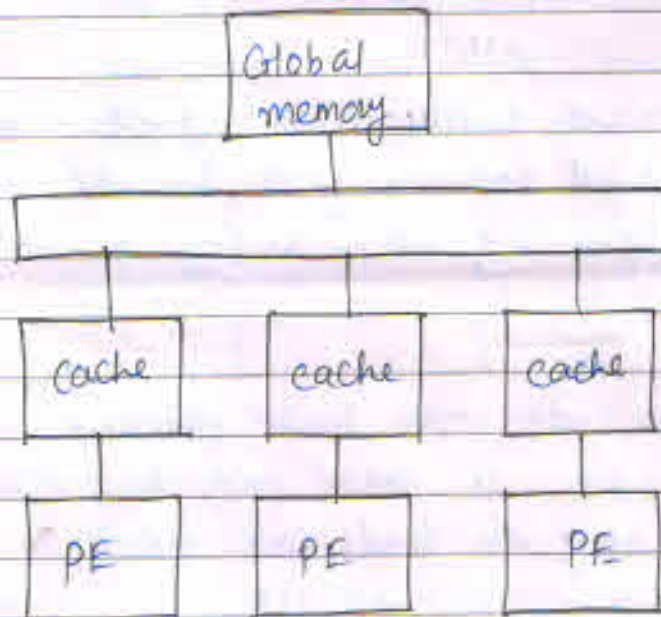 Global
memory.
cache cache cache
PE PE PE